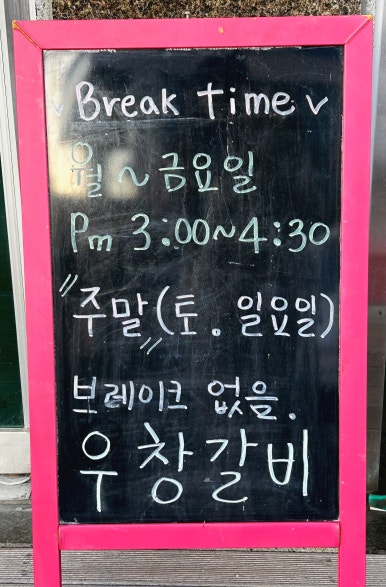 ✓Break time✓
월~금요일
Pm 3:00~4:30
"주말"(토. 일요일)
브레이크 없음.
우창갈비